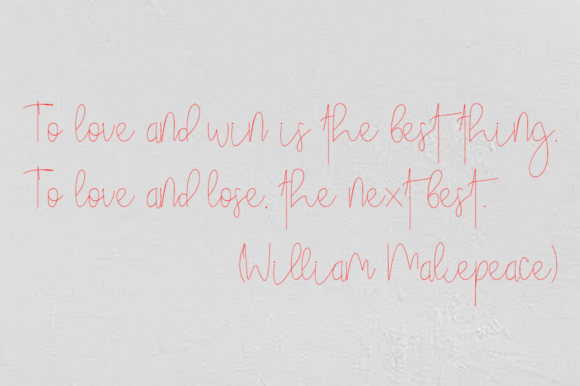 To love and win is the best thing.
To love and lose, the next best.
(William Makepeace)